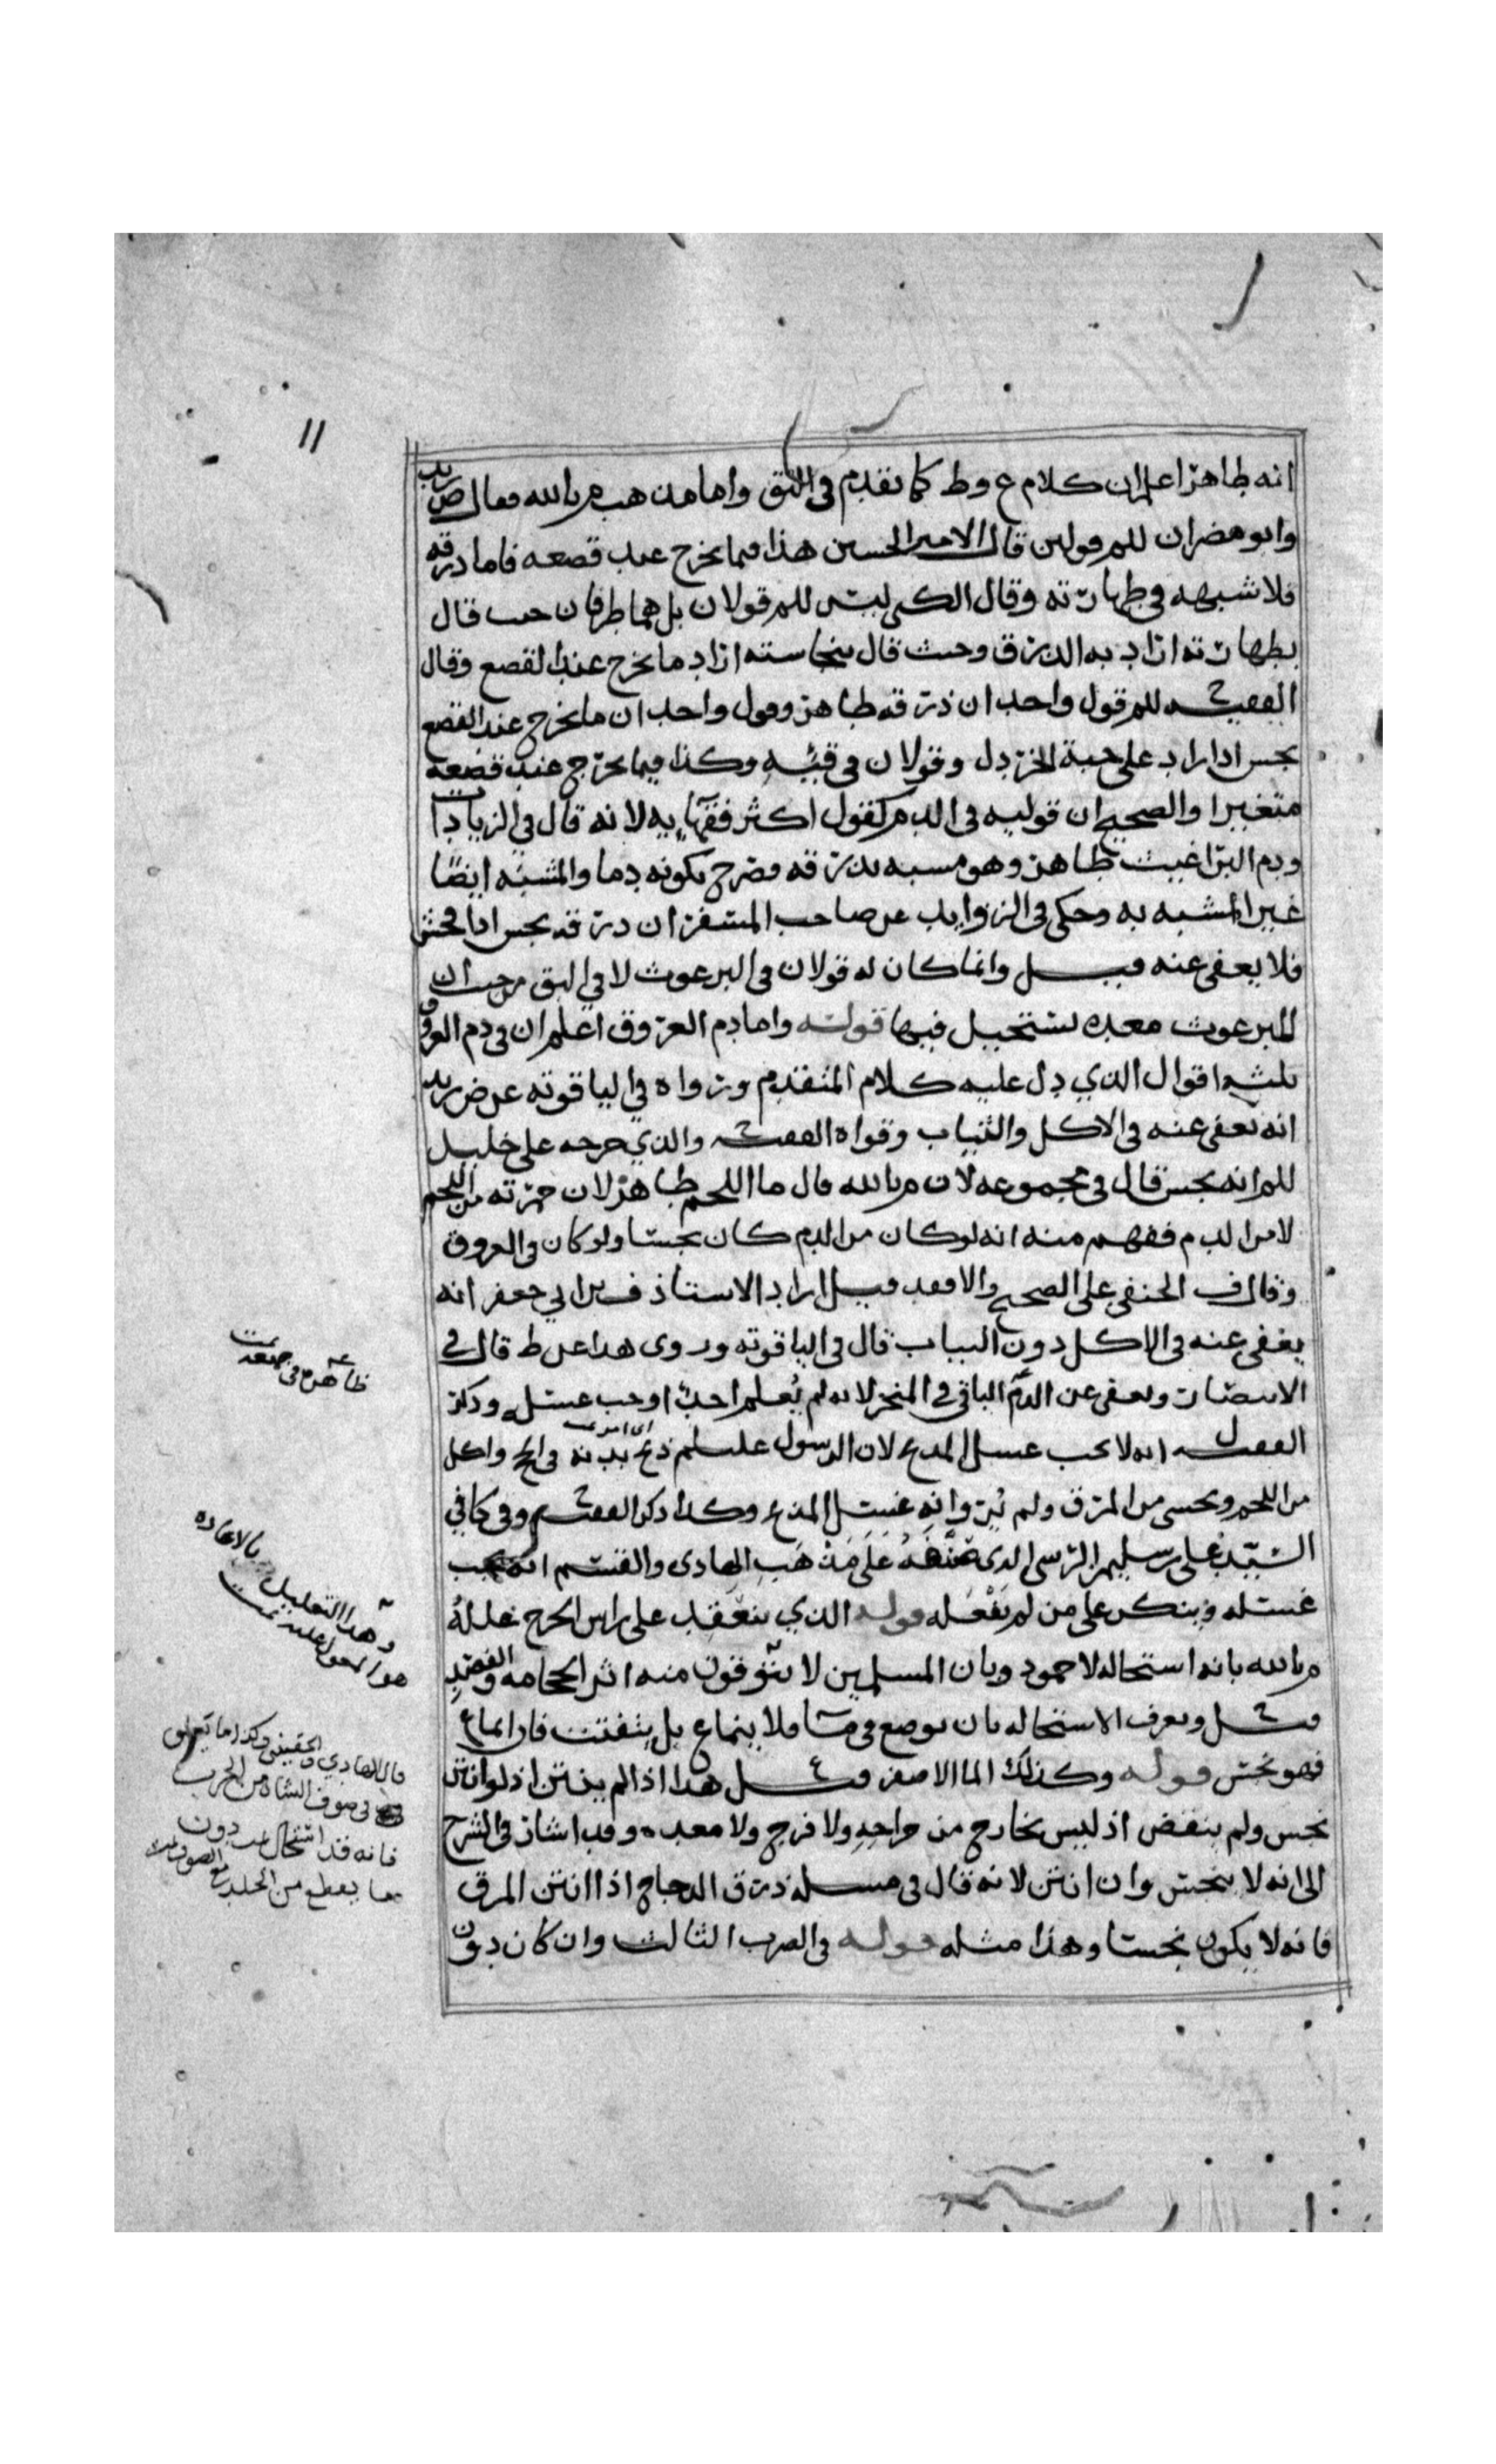 ١١
انه طاهر اعلم ان كلام ع وط كما تقدم في البق واما مذهب م بالله فقال ص زيد
وابو مضر ان للم قولين قال الامير الحسين هذا فيما يخرج عند قصعه فاما ذرقه
فلا شبهه في طهارته وقال الكني ليس للم قولان بل هما طرفان حيث قال
بطهارته اراد به الذرق وحيث قال بنجاسته اراد ما يخرج عند القصع وقال
الفقيه ح للم قول واحد ان ذرقه طاهر وقول واحد ان ما يخرج عند القصع
نجس اذا زاد على حبة الخردل وقولان في قيئه وكذا فيما يخرج عند قصعه
متغيرا والصحيح ان قوليه في الدم كقول اكثر فقهايه لانه قال في الزيادات
ودم البراغيث طاهر وهو مشبه بذرقه فصرح بكونه دما والمشبه ايضا
غير المشبه به وحكى في الزوايد عن صاحب المسفر ان ذرقه نجس اذا فحش
فلا يعفى عنه قيل وانما كان له قولان في البرعوث لا في البق من حيث ان
للبرعوث معده تستحيل فيها قوله واما دم العروق اعلم ان في دم العروق
ثلثه اقوال الذي دل عليه كلام المتقدم ورواه في الياقوته عن ض زيد
انه يعفى عنه في الاكل والثياب وقواه الفقيه ح والذي خرجه علي خليل
للم انه نجس قال في مجموعه لان م بالله قال ما اللحم طاهر لان حمرته من اللحم
لا من الدم ففهم منه انه لو كان من الدم كان نجسا ولو كان في العروق
وقال ف الحنفي على الصحيح والافقد قيل اراد الاستاذ ف بن ابي جعفر انه
يعفى عنه في الاكل دون الثياب قال في الياقوته وروى هذا عن ط قال في
الانتصار ويعفى عن الدم الباقي في المنحر لانه لم يعلم احد اوجب غسله وذكر
الفقيه ل انه لا يجب غسل المذبح لان الرسول عليسلم ذبح بدنه في الحج واكل
من اللحم وتحسى من المرق ولم يرو انه غسل المذبح وكذا ذكر الفقيه ح وفي كافي
السيد علي بن سليمن الرسي الذي صنفه على مذهب الهادي والقسم انه يجب
غسله وينكر على من لم يفعله قوله الذي ينعقد على راس الجرح علله
م بالله بانه استحاله لا جمود وبان المسلمين لا يتوقون منه اثر الحجامه والفصد
قيل ح ويعرف الاستحاله بان يوضع في ما فلا ينماع بل يتفتت فان انماع
فهو نجس قوله وكذلك الما الاصفر قيل ع هذا اذا لم ينتن اذ لو انتن
نجس ولم ينقض اذ ليس بخارج من جراحه ولا فرج ولا معده وقد اشار في الشرح
الى انه لا ينجس وان انتن لانه قال في مسله ذرق الدجاج اذا انتن المرق
فانه لا يكون نجسا وهذا مثله قوله في الضرب الثالث وان كان دون
ظاهره في جمعه تمت
وهذا التعليل بالاعاده
هو المعول عليه تمت
قال الهادي الحقيني وكذا ما تعلق
في صوف الشاه من الجرب
فانه قد استحال دون
ما يقطع من الجلد مع الصوف تمت